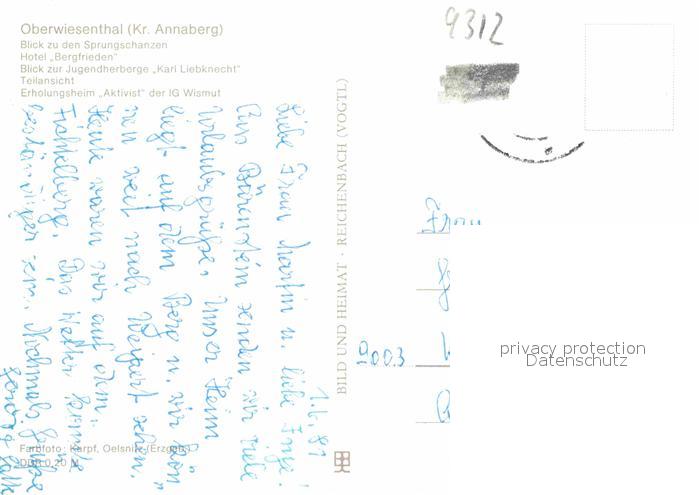 Oberwiesenthal (Kr. Annaberg)
Blick zu den Sprungschanzen
Hotel „Bergfrieden"
Blick zur Jugendherberge „Karl Liebknecht"
Teilansicht
Erholungsheim „Aktivist" der IG Wismut
9312
1.6.81
Liebe Frau Martin u. liebe Inge!
Aus Bärenstein senden wir viele
Urlaubsgrüße. Unser Heim
liegt auf dem Berg u. wir kön-
nen weit nach Weipert sehn.
Heute waren wir auf dem
Fichtelberg. Das Wetter
beständiger sein. Nochmals Grüße
BILD UND HEIMAT · REICHENBACH (VOGTL)
Frau
9003
privacy protection
Datenschutz
Farbfoto: Karpf, Oelsnitz (Erzgeb)
DDR 0,20 M